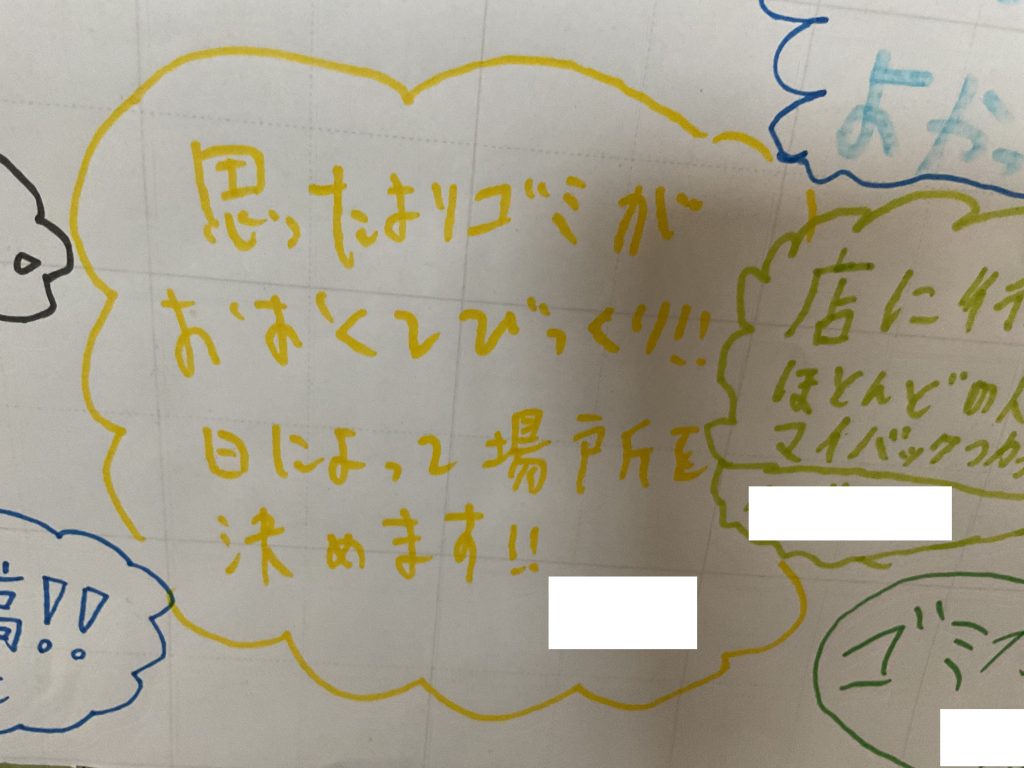 思ったよりゴミが
おおくてびっくり!!
日によって場所を
決めます!!
よかっ
店に行
ほとんどの人
マイバックつかっ
高!!
ゴミ